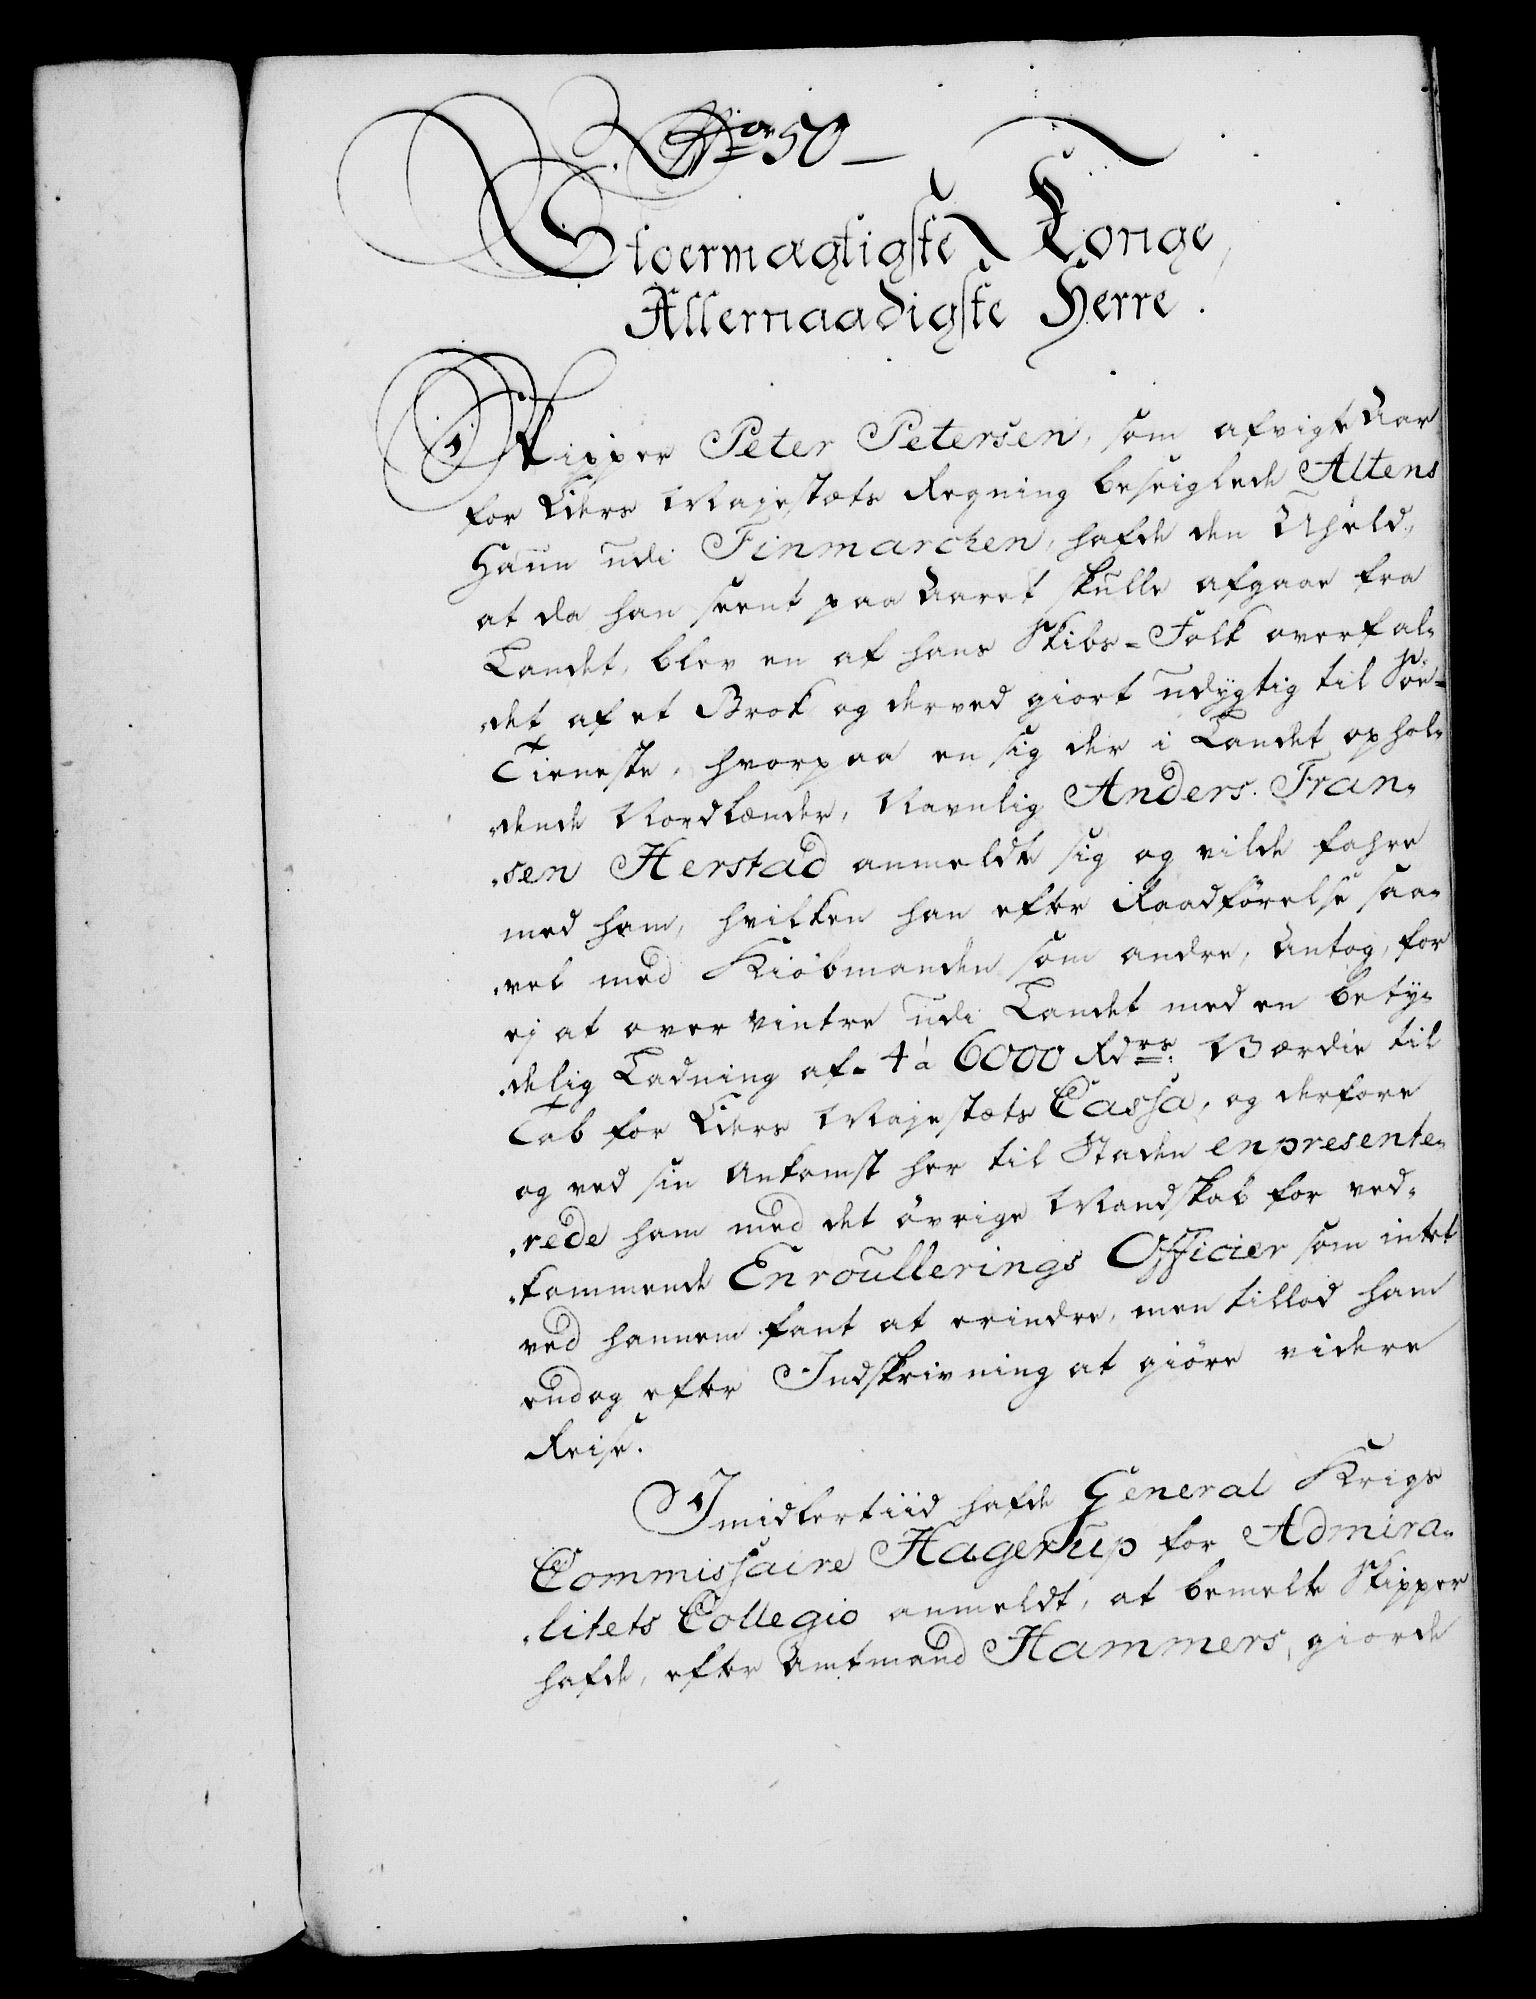 No 50
Stoermægtigste Konge,
Allernaadigste Herre.
Skipper Peter Petersen, som afvigte Aar
for Eders Majestæts Regning beseiglede Altens
Hafn udi Finmarchen, hafde den Uheld,
at da han seent paa Aaret skulle afgaae fra
Landet, blev en af hans Skibs-Folk overfal-
det af et Brok og derved giort udygtig til Søe-
Tieneste, hvorpaa en sig der i Landet ophol-
dende Nordlænder, Navnlig Anders Fran-
sen Herstad anmeldte sig og vilde fahre
med ham, hvilken han efter Raadførelse saa-
vel med Kiøbmanden som andre, antog, for
ej at over vintre udi Landet med en bety-
delig Ladning af 4 à 6000 Rdrs Værdie til
Tab for Eders Majestæts Cassa, og derfore
og ved sin Ankomst her til Staden enpresente-
rede ham med det øvrige Mandskab for ved-
kommende Enroullerings Officier som intet
ved hannem fant at erindre, men tillod ham
endog efter Indskrivning at giøre videre
Reise.
Imidlertiid hafde General Krigs
Commissaire Hagerup for Admira-
litets Collegio anmeldt, at bemelte Skipper
hafde, efter Amtmand Hammers, giorde